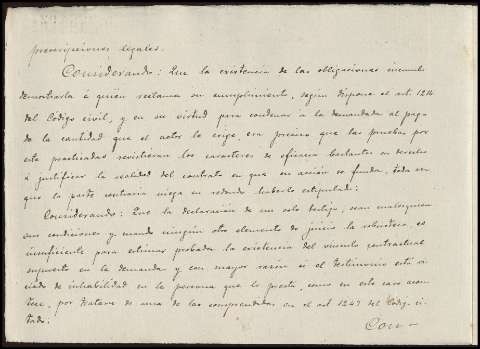 prescripciones legales.
Considerando: Que la existencia de las obligaciones incumbe
demostrarla á quien reclama su cumplimiento, segun dispone el art. 1214
del Código civil, y en su virtud para condenar á la demandada al pago
de la cantidad que el actor la exige, era preciso que las pruebas por
este practicadas revistieran los caracteres de eficacia bastantes en derecho
á justificar la realidad del contrato en que su acción se funda, toda vez
que la parte contraria niega en redondo haberlo estipulado:
Considerando: Que la declaración de un solo testigo, sean cualesquiera
sus condiciones y cuando ningún otro elemento de juicio la robustece, es
insuficiente para estimar probada la existencia del vínculo contractual
supuesto en la demanda y con mayor razón si el testimonio está vi-
ciado de inhabilidad en la persona que lo presta, como en este caso acon-
tece, por tratarse de una de las comprendidas en el art. 1247 del Código ci-
tado:
Con-